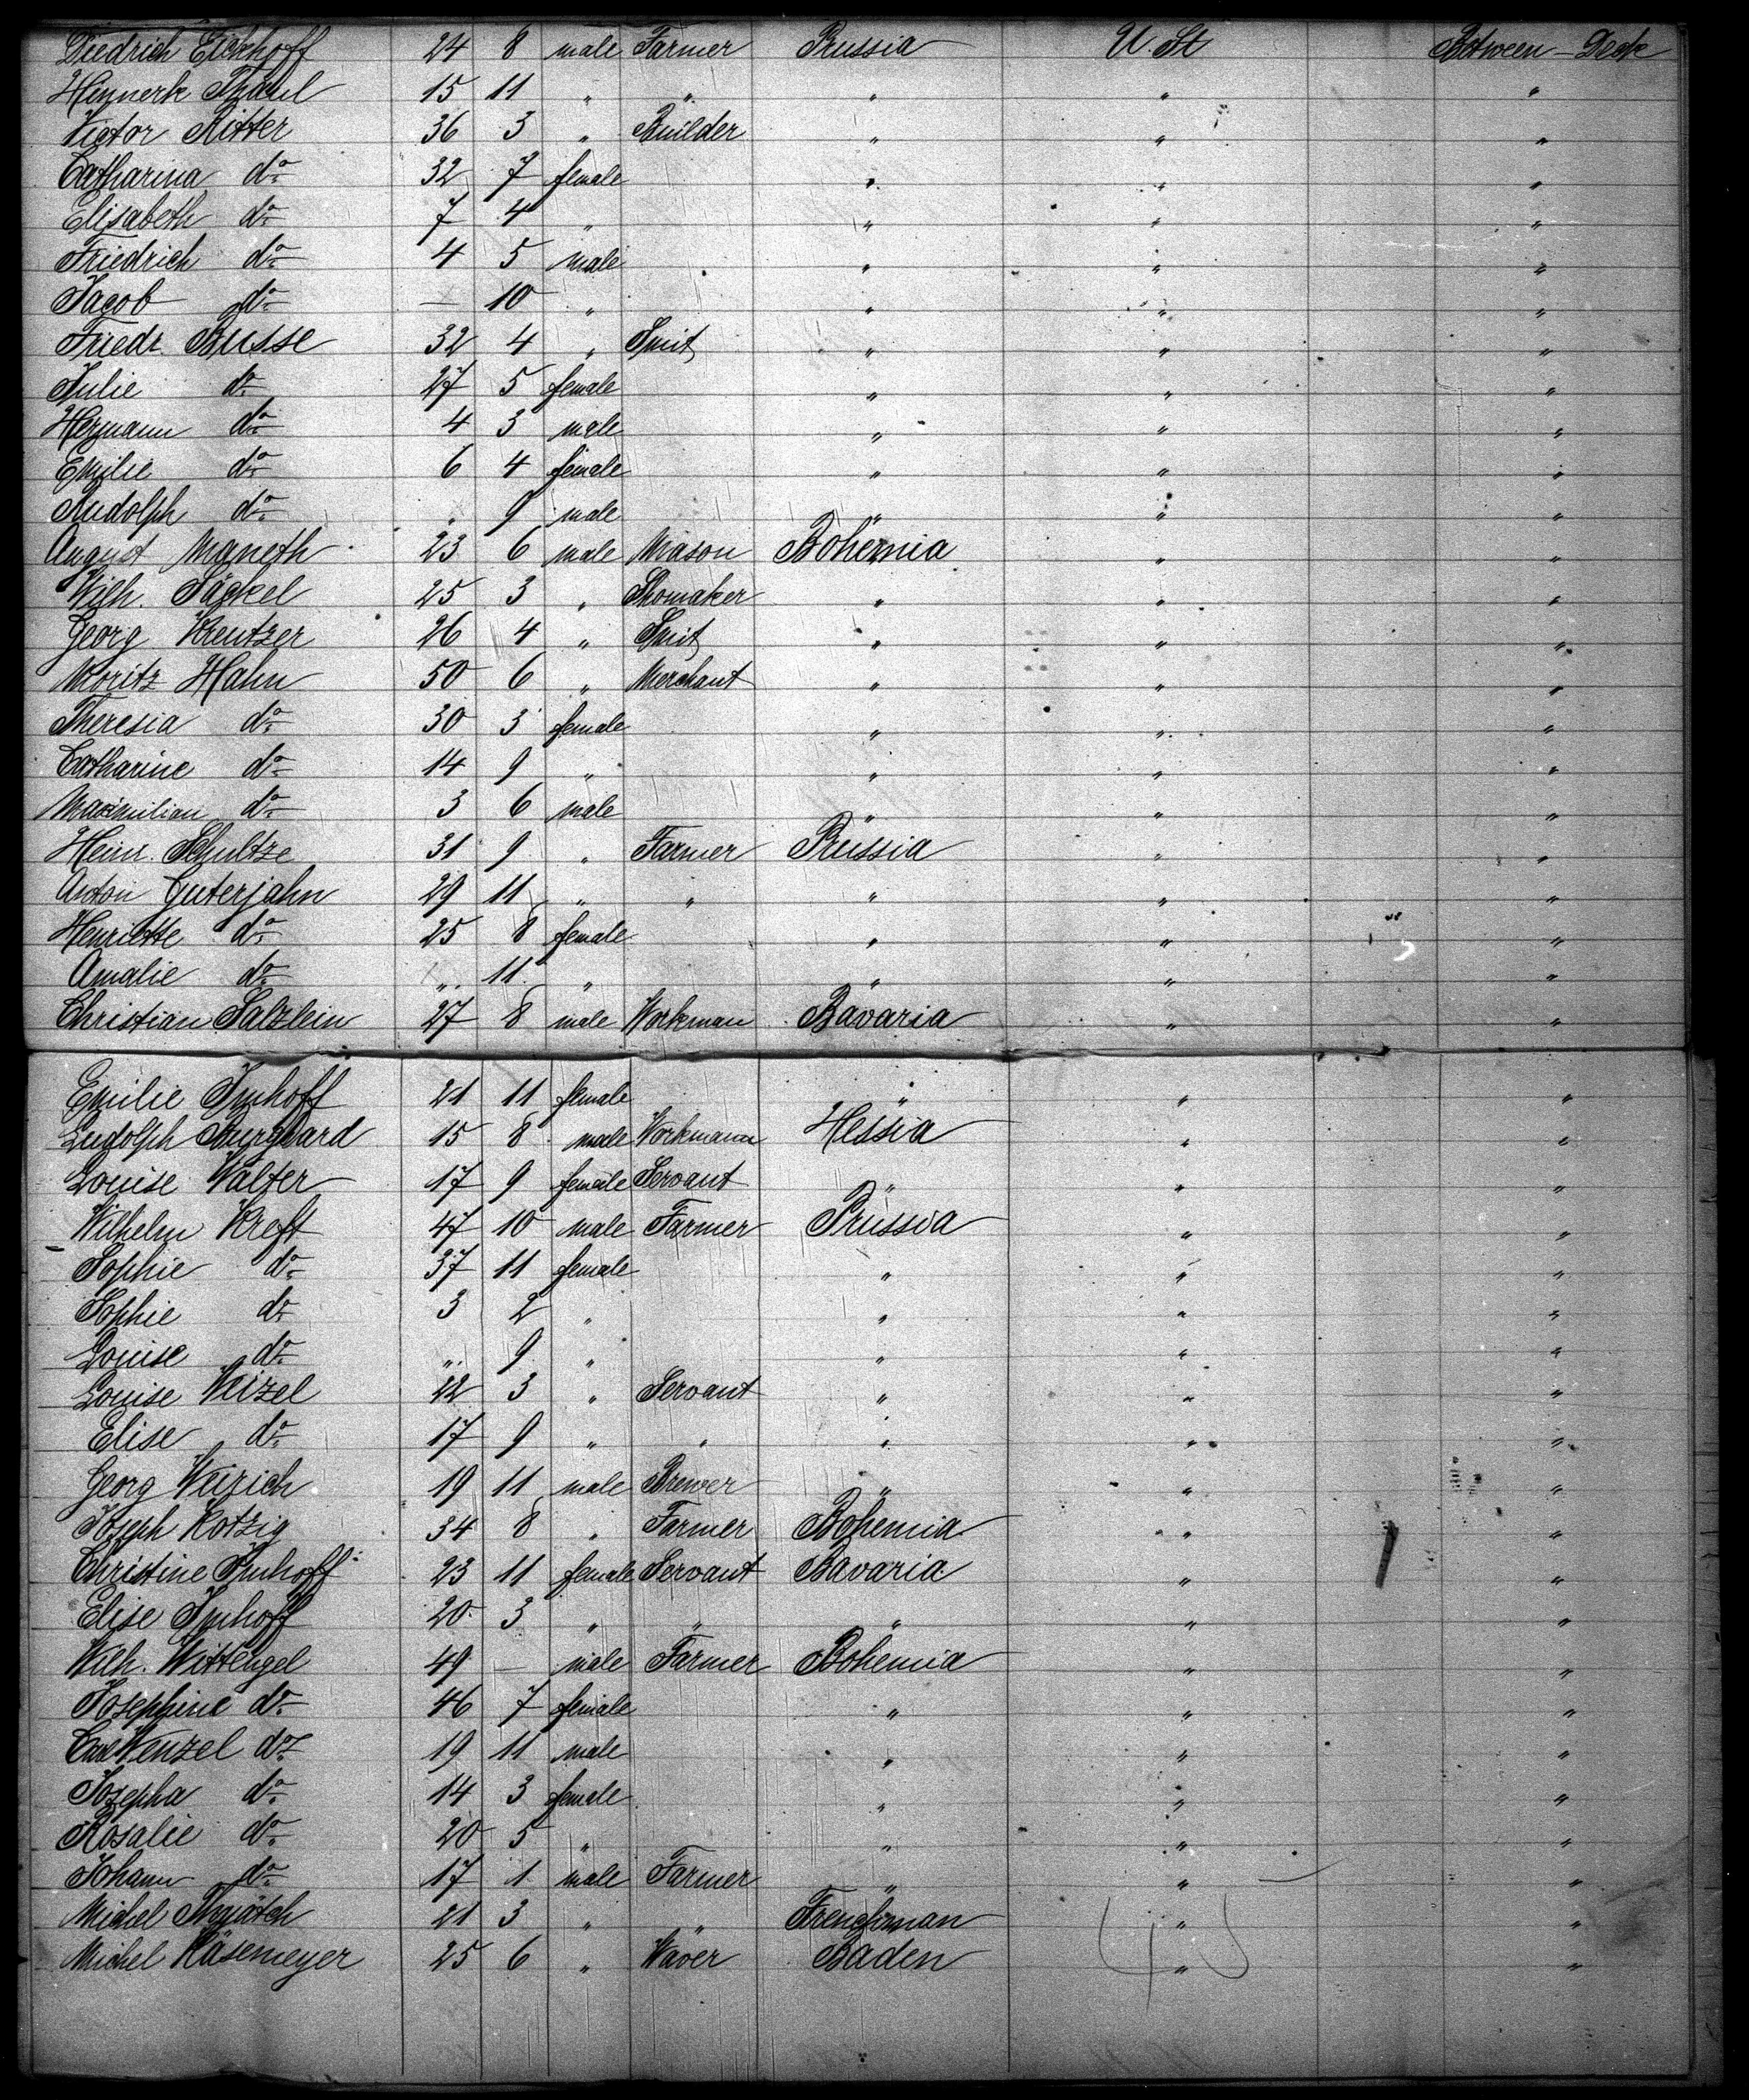 Diedrich Eickhoff 24 8 male Farmer Prussia U. St Between-Deck
Hinnerk 15 11 " " " " "
Victor Ritter 36 3 " Builder " " "
Catharina do 32 7 female " " "
Elisabeth do 7 4 " " " "
Friedrich do 4 5 male " " "
Jacob do — 10 " " " "
Friedr. Busse 32 4 " Smit " " "
Julie do 27 5 female " " "
Hermann do 4 3 male " " "
Emilie do 6 4 female " " "
Rudolph do " 9 male " " "
August Magneth 23 6 male Mason Bohemia " "
Wilh. Jäckel 25 3 " Shomaker " " "
Georg Kreutzer 26 4 " Smit " " "
Moritz Hahn 50 6 " Merchant " " "
Theresia do 30 3 female " " "
Catharine do 14 9 " " " "
Maximilian do 3 6 male " " "
Heinr. Schultze 31 9 " Farmer Prussia " "
Anton Guterjahn 29 11 " " " " "
Henriette do 25 8 female " " "
Amalie do " 11 " " " "
Christian Salzlein 27 8 male Workman Bavaria " "
Emilie Imhoff 21 11 female " " "
Ludolph Burghard 15 8 male Workmann Hessia " "
Louise Walter 17 9 female Servant " " "
Wilhelm Kreft 47 10 male Farmer Prussia " "
Sophie do 37 11 female " " "
Sophie do 3 2 " " " "
Louise do " 9 " " " "
Louise Weizel 22 3 " Servant " " "
Elise do 17 9 " " " " "
Georg Weirich 19 11 male Brewer " " "
Joseph Kotzig 34 8 " Farmer Bohemia " "
Christine Imhoff 23 11 female Servant Bavaria " "
Elise Imhoff 20 3 " " " " "
Wilh. Wittengel 49 — male Farmer Bohemia " "
Josephine do 46 7 female " " "
Carl Wenzel do 19 11 male " " "
Josepha do 14 3 female " " "
Rosalie do 20 5 " " " "
Johann do 17 1 male Farmer " " "
Michel 21 3 " " Frenchman " "
Michel Käsemeyer 25 6 " Waver Baden " "